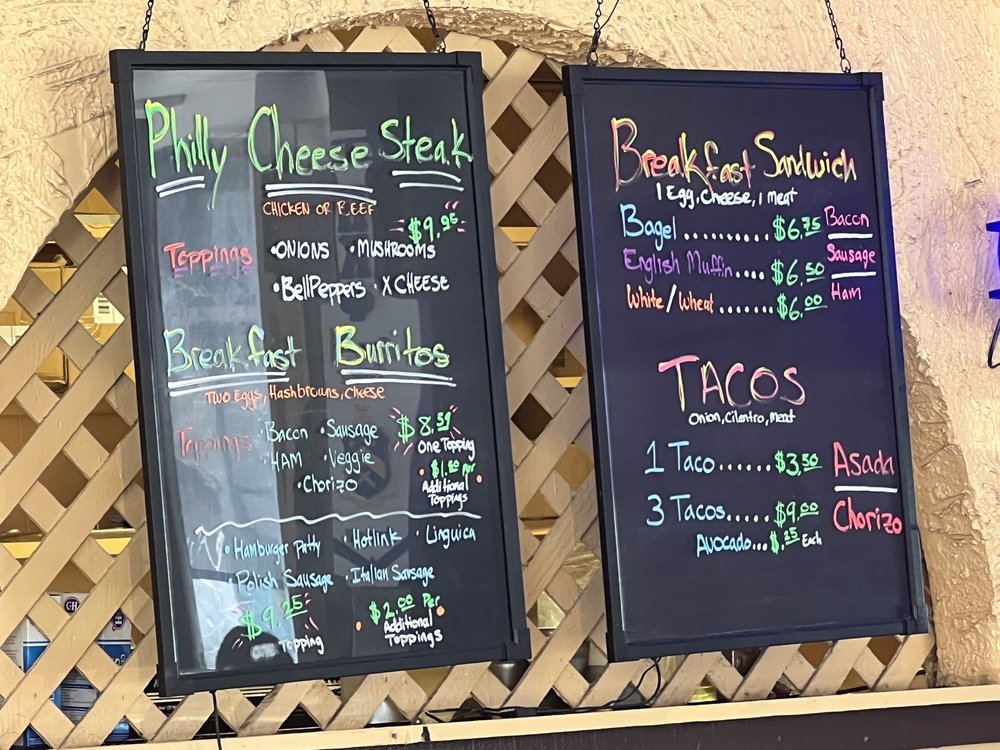 Philly Cheese Steak
CHICKEN OR BEEF
$9.95
Toppings •ONIONS •MUSHROOMS
•BellPeppers •X CHEESE
Breakfast Burritos
Two Eggs, Hashbrowns, Cheese
Toppings •Bacon •Sausage
•HAM •Veggie
•Chorizo
$8.50
One Topping
Per
Additional
Toppings
•Hamburger Patty •Hotlink •Linguica
•Polish Sausage •Italian Sausage
$9.25
Topping
$2.00 Per
Additional
Toppings
Breakfast Sandwich
1 Egg, Cheese, 1 meat
Bagel ........... $6.75 Bacon
English Muffin.... $6.50 Sausage
White/Wheat ....... $6.00 Ham
TACOS
Onion, Cilantro, Meat
1 Taco...... $3.50 Asada
3 Tacos..... $9.00 Chorizo
Avocado... $.25 Each